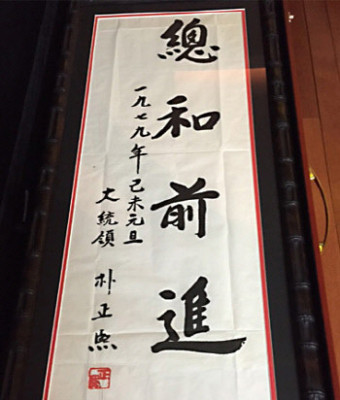 總和前進
一九七九年 己未元旦
大統領 朴正熙